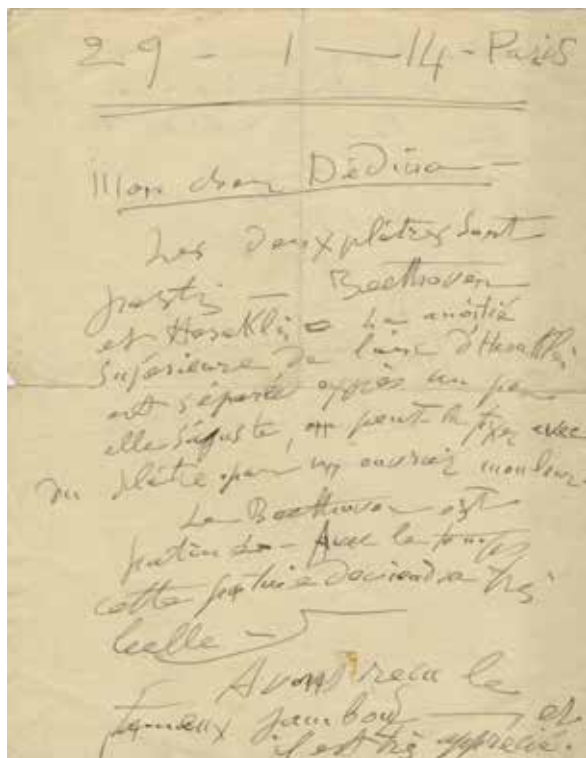 29 - 1 — 14 - Paris
Mon cher Dédina —
Les deux plâtres sont
partis — Beethoven
et Heraklès — La moitié
supérieure de l'arc d'Heraklès
est séparée exprès un peu
elle s'ajuste, on peut la fixer avec
du plâtre par un ouvrier mouleur.
Le Beethoven est
patiné — Avec le temps
cette patine deviendra très
belle —
Avons reçu le
fameux jambon — et
il est très apprécié.